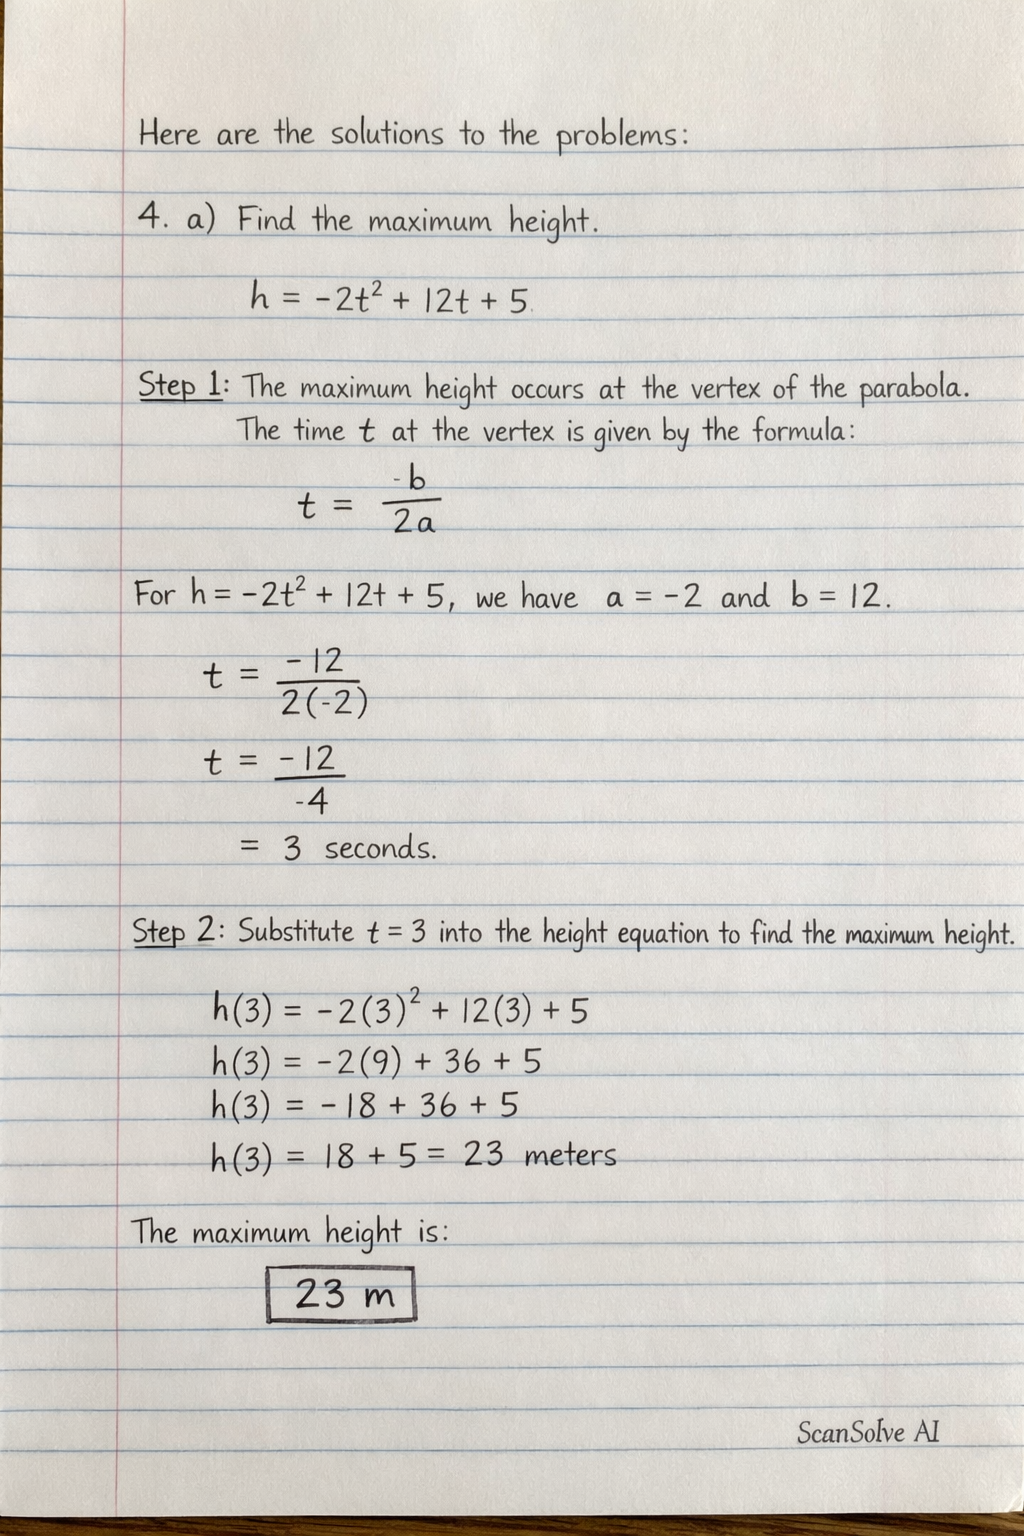 Here are the solutions to the problems:
4. a) Find the maximum height.
h = -2t² + 12t + 5
Step 1: The maximum height occurs at the vertex of the parabola.
The time t at the vertex is given by the formula:
t = -b / 2a
For h = -2t² + 12t + 5, we have a = -2 and b = 12.
t = -12 / 2(-2)
t = -12 / -4
= 3 seconds.
Step 2: Substitute t = 3 into the height equation to find the maximum height.
h(3) = -2(3)² + 12(3) + 5
h(3) = -2(9) + 36 + 5
h(3) = -18 + 36 + 5
h(3) = 18 + 5 = 23 meters
The maximum height is:
23 m
ScanSolve AI